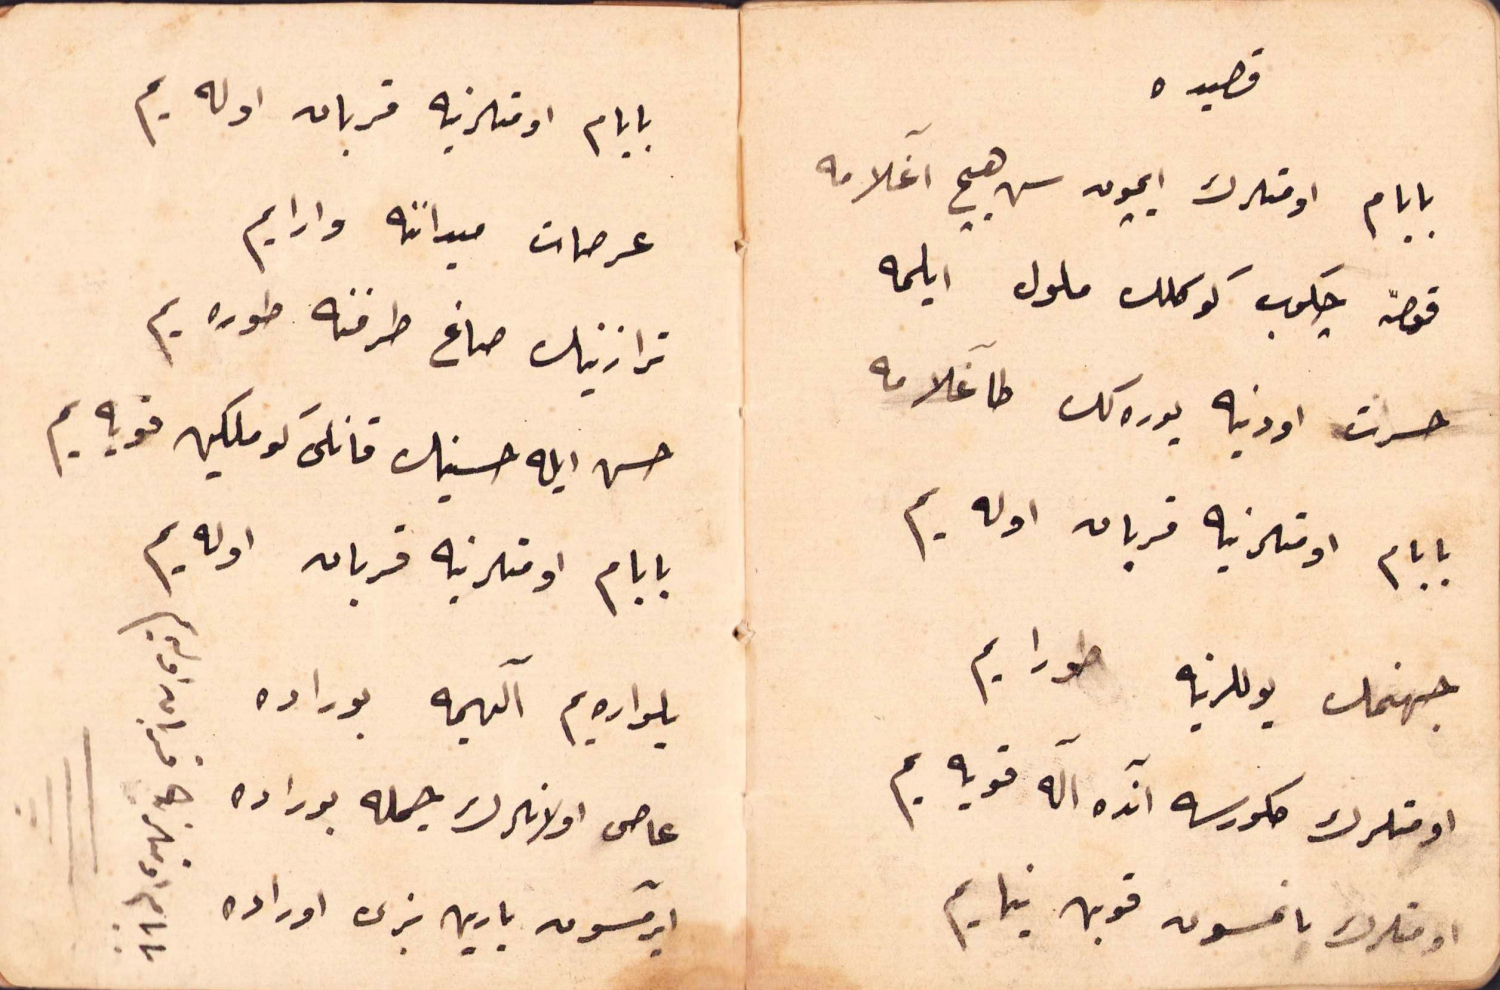 قصیده
بابام اومتلرك ایچون سن هیچ آغلامه
قوصه چكوب كوكلك ملول ایلمه
حسرت اودینه یورەكك طاغلامه
بابام اومتلرینه قربان اوله یم
جهنمك یوللرینه طورایم
اومتلرك كورسه آنده آله قویه یم
اومتلرك یانمسون قوین ینایم
بابام اومتلرینه قربان اوله یم
عرصات میداننه وارایم
ترازینك صاغ طرفنه طوره یم
حسن ایله حسینك قانلی كوملكین قویه یم
بابام اومتلرینه قربان اوله یم
یلواره یم آللهیمه بوراده
عاصی اولانلرك جمله بوراده
ایرگسون یارین بزی اوراده
بابام اومتلرینه قربان اوله یم